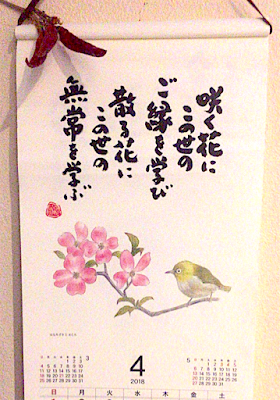 咲く花に
この世の
ご縁を学び
散る花に
この世の
無常を学ぶ
3
4
2018
5
日
月
火
水
木
金
土